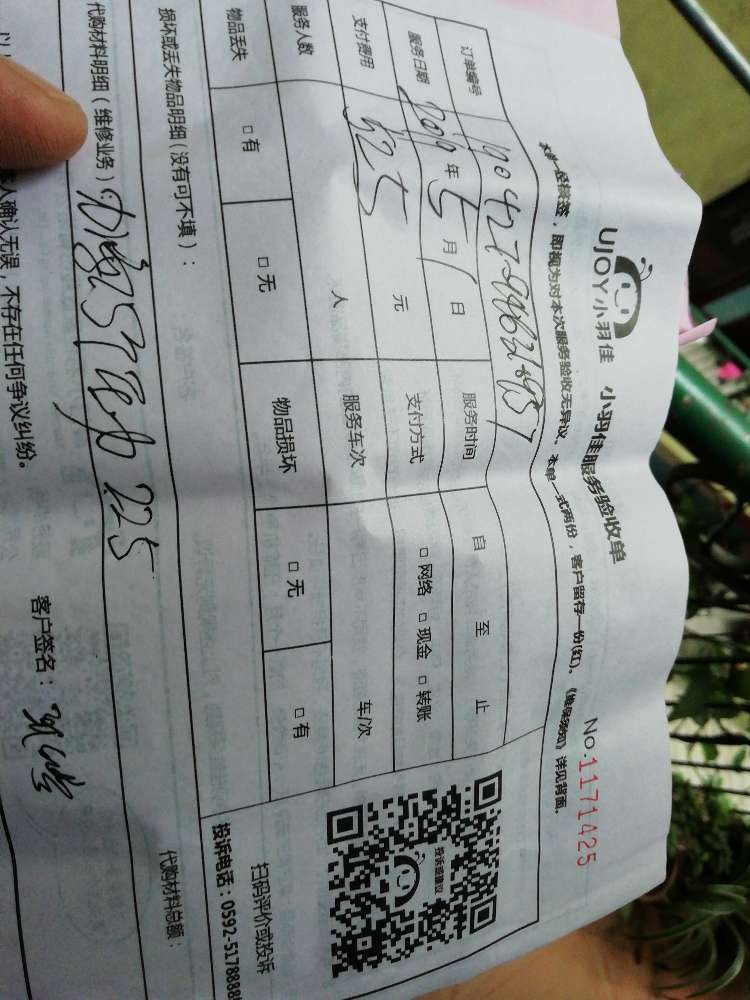 UJOY小羽佳 小羽佳服务验收单 No.1171425
即视为对本次服务验收无异议。本单一式两份，客户留存一份(红)。《维保须知》详见背面。
订单编号
服务日期 2019年5月1日 服务时间 自 至 止
支付费用 525元 支付方式 □网络 □现金 □转账
服务人数 人 服务车次 车/次
物品丢失 □有 □无 物品损坏 □无 □有
投诉或建议
扫码评价或投诉
投诉电话：0592-5178888
损坏或丢失物品明细(没有可不填)：
代购材料明细(维修业务)： 225
代购材料总额：
人确认无误，不存在任何争议纠纷。
客户签名：